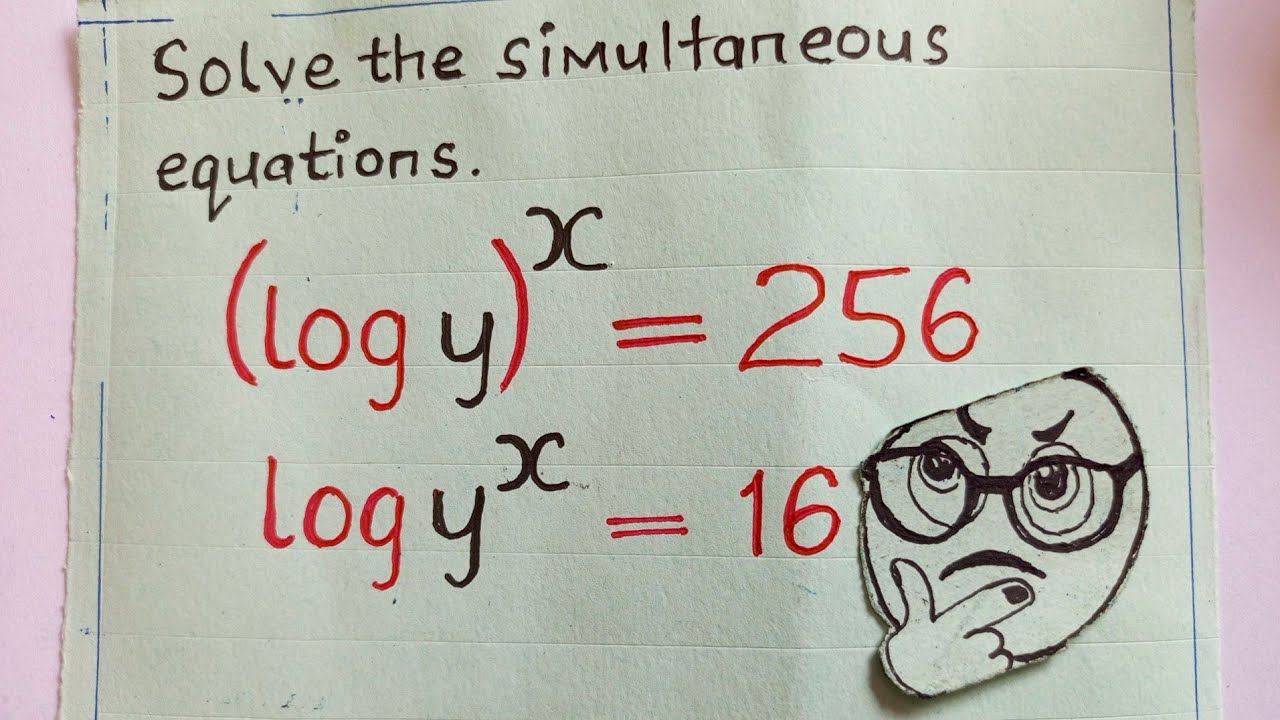 Solve the simultaneous
equations.
(log y)^x = 256
log y^x = 16